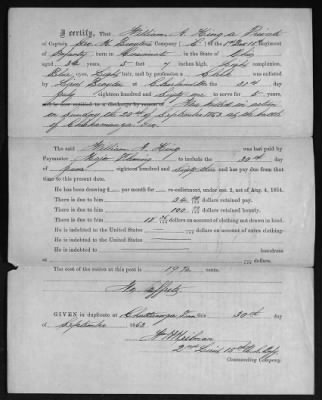 I certify, That William A. King a Private
of Captain Geo. H. Company ( C ) of the 1st Bat 15th Regiment
of Infantry born in Cincinnati in the State of Ohio
aged years, 5 feet 7 inches high, Light complexion,
Blue eyes, Light hair, and by profession a Clerk was enlisted
by at on the 30th day
July eighteen hundred and Sixty one to serve for years,
He was killed in action
on Sunday the 20th of September 1863 at the battle
of Chickamauga Geo.
The said William A. King was last paid by
Paymaster Major to include the 30th day
of June eighteen hundred and Sixty three and has pay due from that
time to the present date.
He has been drawing $ per month for re-enlistment, under sec. 2, act of Aug. 4, 1854.
There is due to him dollars retained pay.
There is due to him 100 dollars retained bounty.
There is due to him dollars on account of clothing not drawn in kind.
He is indebted to the United States dollars on account of extra clothing
He is indebted to the United States
He is indebted to laundress
at dollars.
The cost of the ration at this post is cents.
No effects
GIVEN in duplicate at Chattanooga Tenn this 30th day
of September 1863
2nd Lieut 15th U.S. Inf.
Commanding Company.